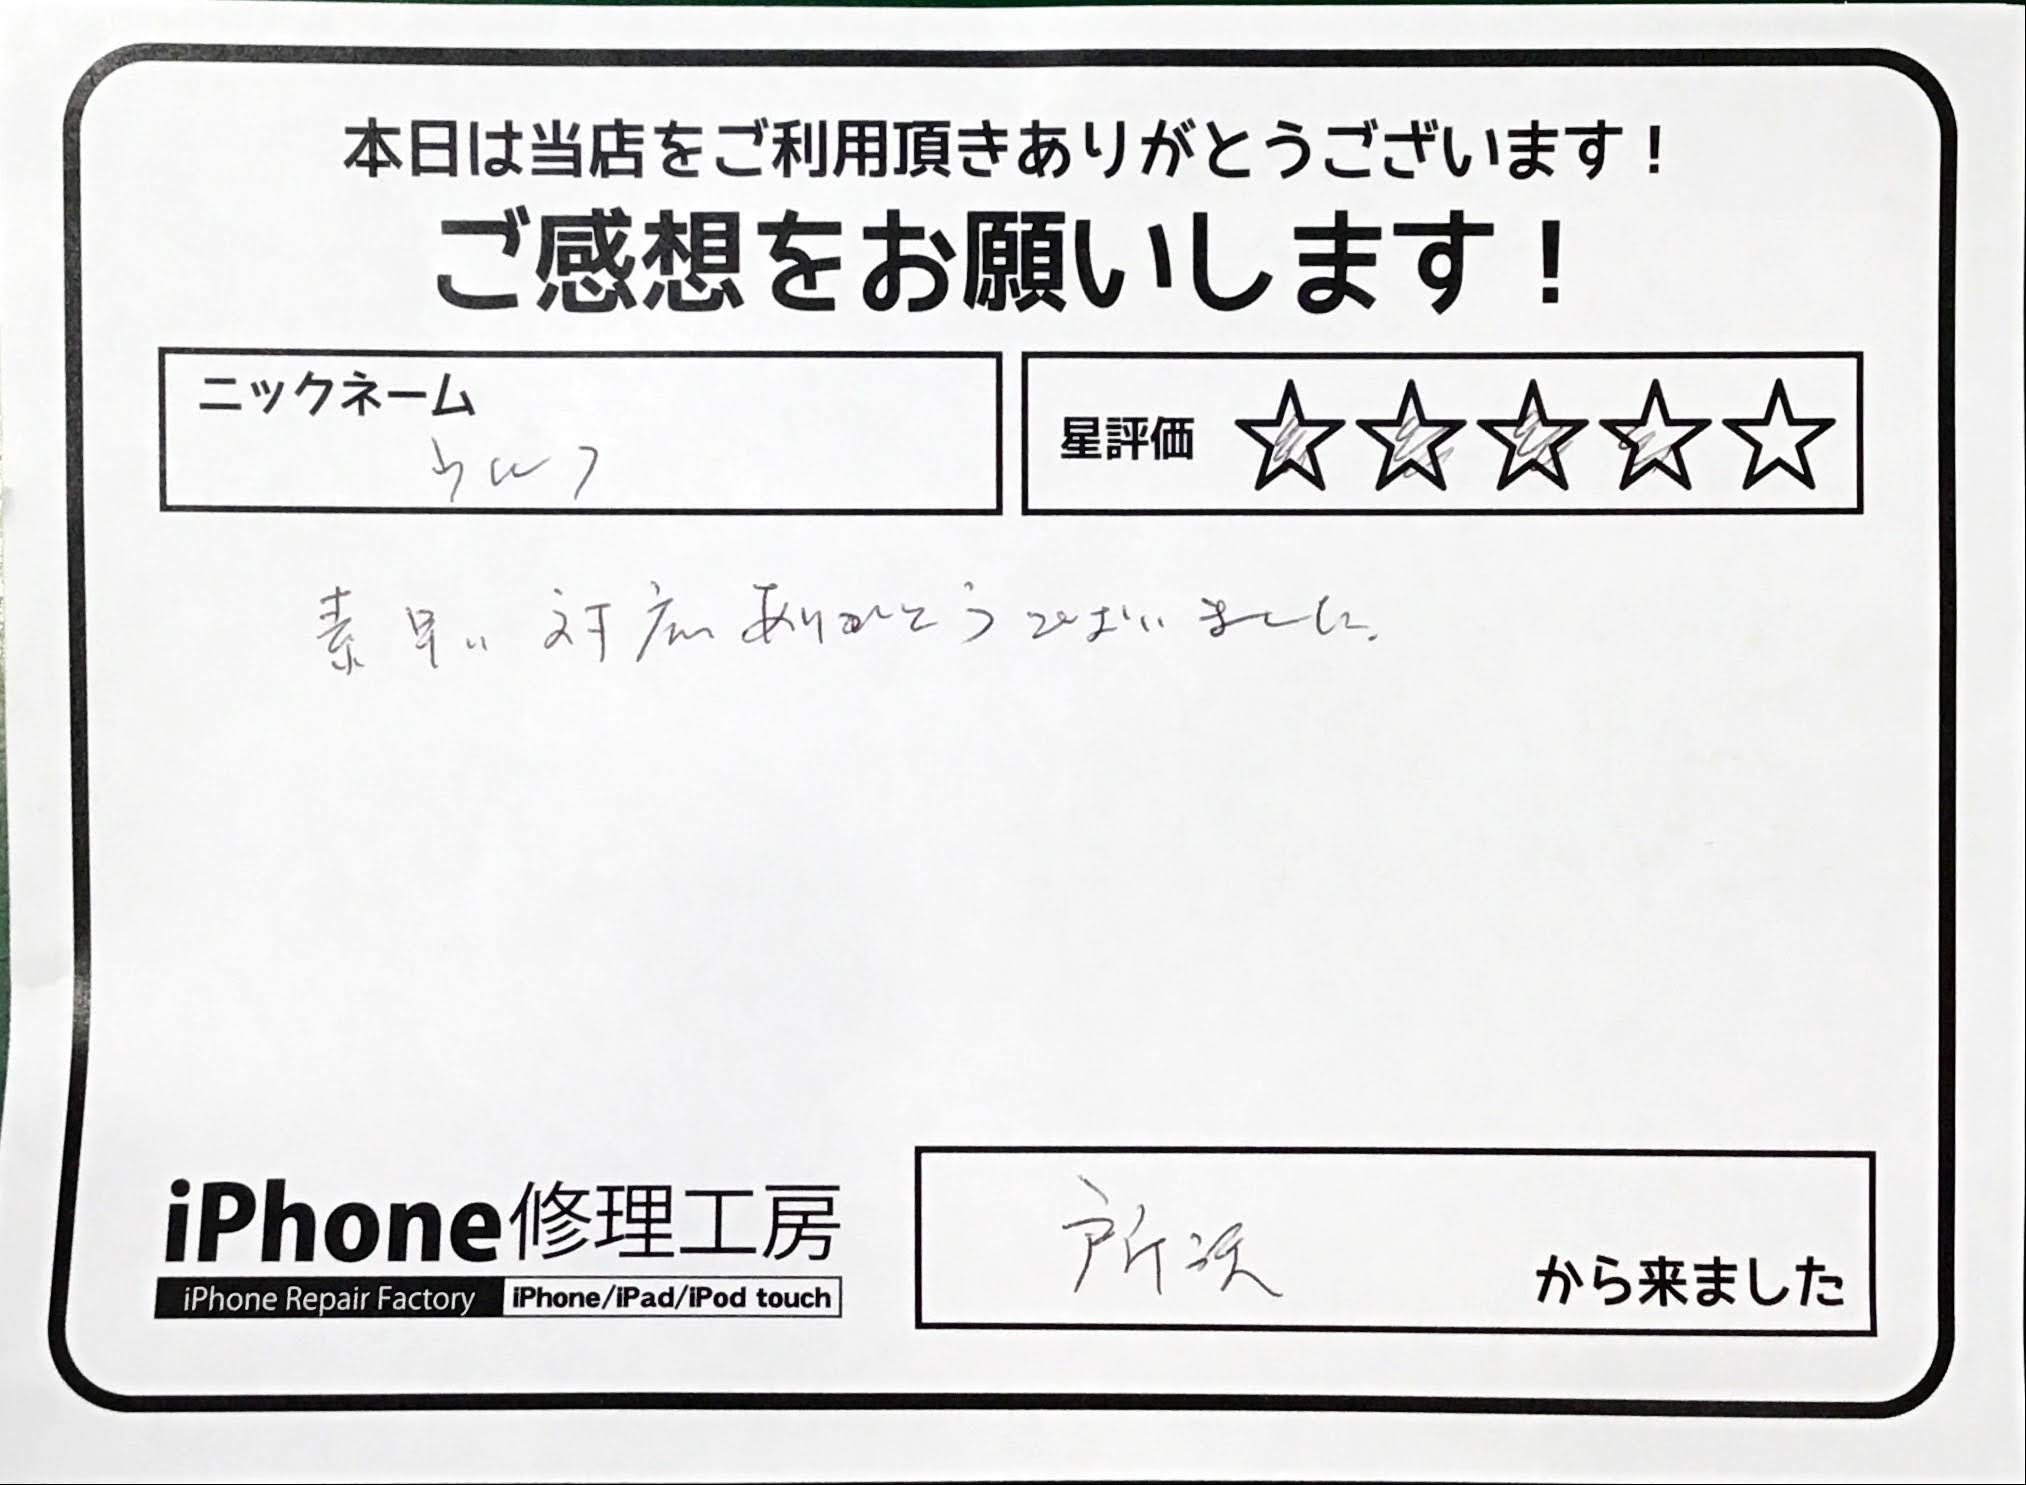 本日は当店をご利用頂きありがとうございます!
ご感想をお願いします!
ニックネーム
うんフ
星評価 ☆☆☆☆☆
素早い対応ありがとうございました。
iPhone修理工房
iPhone Repair Factory iPhone/iPad/iPod touch
所沢 から来ました